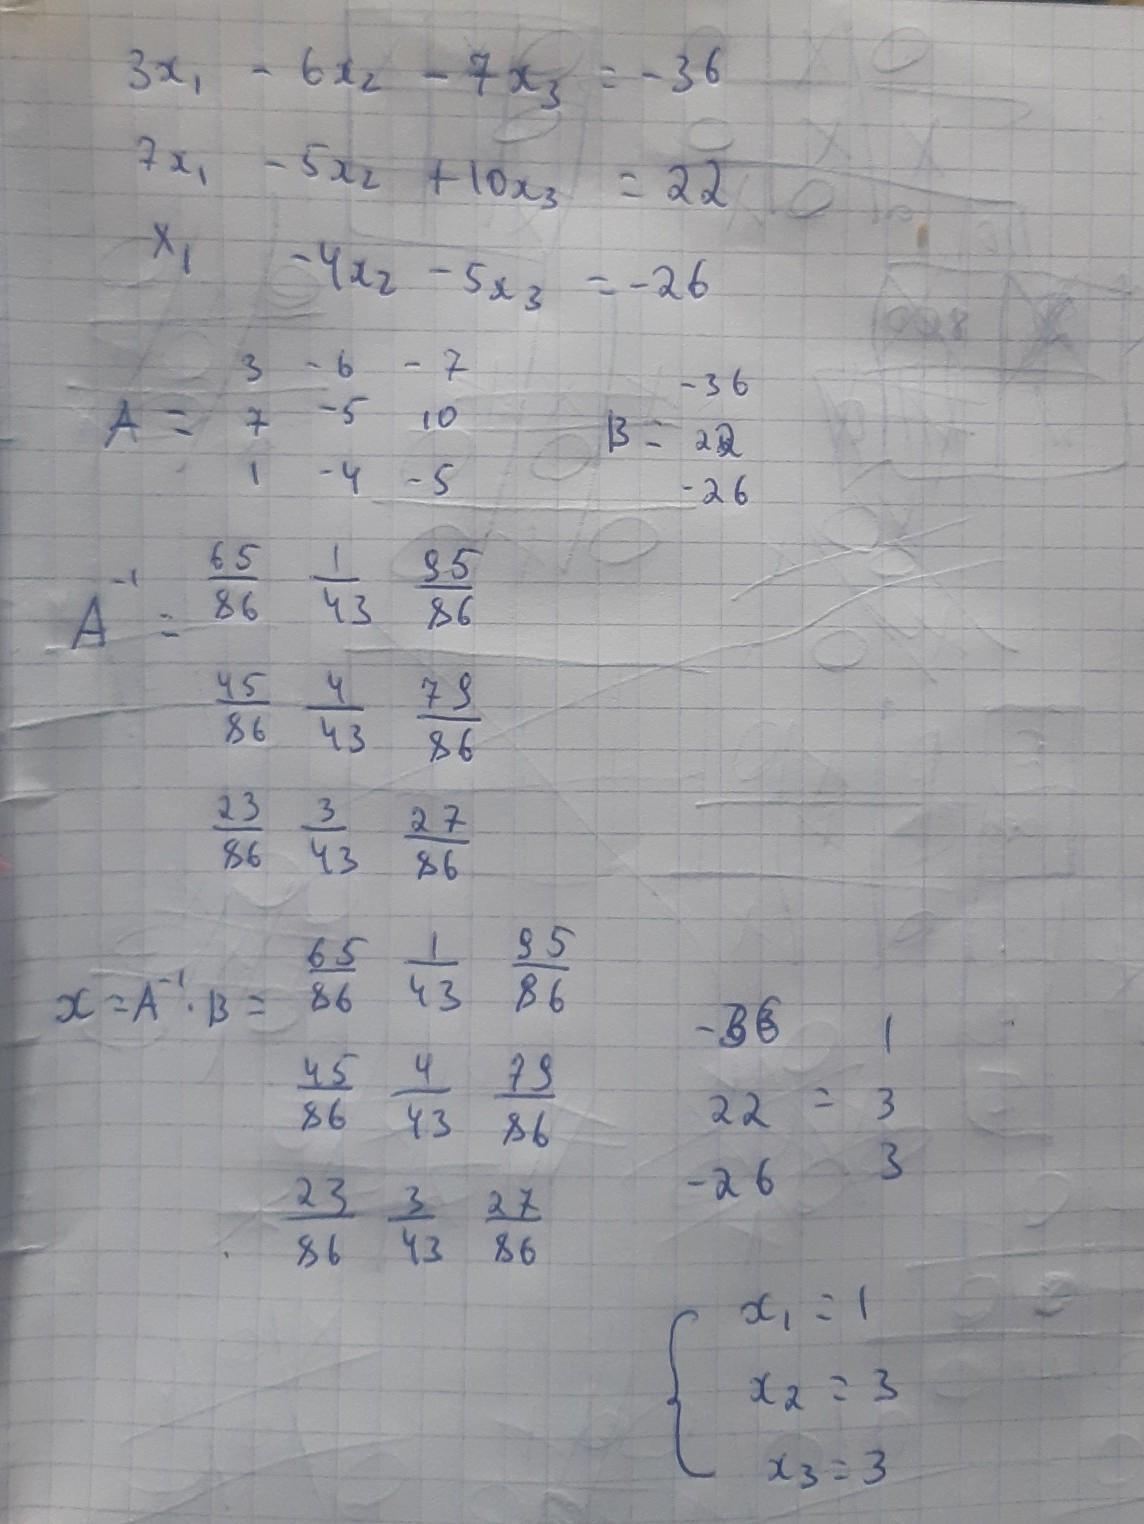 3x₁ - 6x₂ - 7x₃ = -36
7x₁ - 5x₂ + 10x₃ = 22
x₁ - 4x₂ - 5x₃ = -26
3 -6 -7
A = 7 -5 10
1 -4 -5
-36
B = 22
-26
A⁻¹ = 65/86 1/43 95/86
45/86 4/43 79/86
23/86 3/43 27/86
x = A⁻¹ · B = 65/86 1/43 95/86
45/86 4/43 79/86
23/86 3/43 27/86
-36 1
22 = 3
-26 3
{ x₁ = 1
x₂ = 3
x₃ = 3